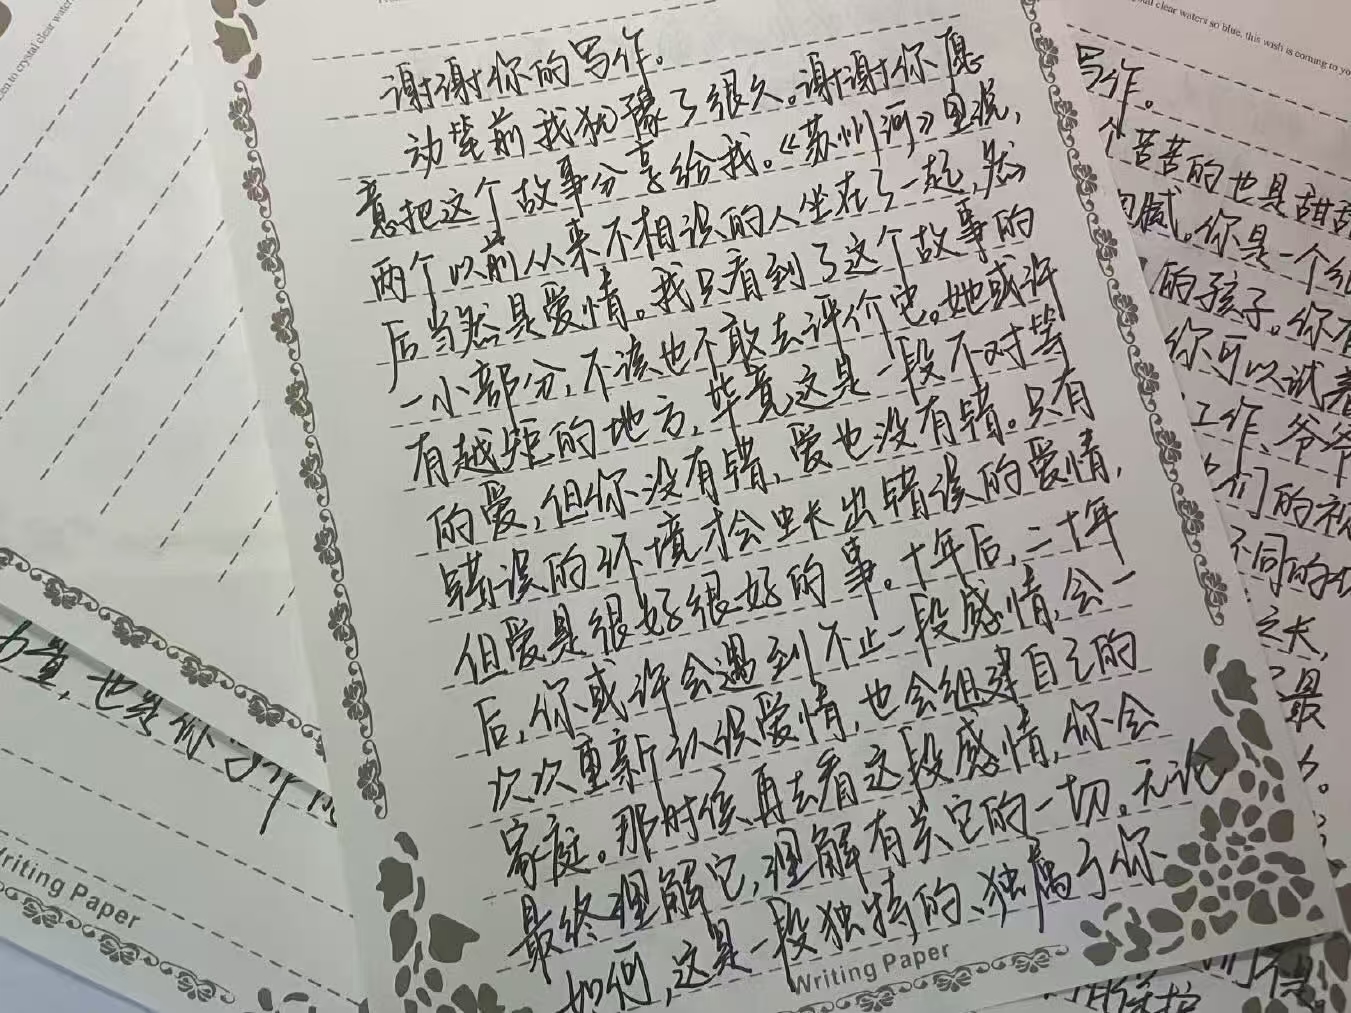 谢谢你的写作。
动笔前我犹豫了很久。谢谢你愿
意把这个故事分享给我。《苏州河》里说，
两个以前从来不相识的人坐在了一起，然
后当然是爱情。我只看到了这个故事的
一小部分，不该也不敢去评价它。她或许
有越矩的地方，毕竟这是一段不对等
的爱，但你没有错，爱也没有错。只有
错误的环境才会生长出错误的爱情，
但爱是很好很好的事。十年后，二十年
后，你或许会遇到不止一段感情，会一
次次重新认识爱情，也会组建自己的
家庭。那时候再去看这段感情，你会
最终理解它，理解有关它的一切。无论
如何，这是一段独特的、独属于你
Writing Paper
写作。
个苦苦的也是甜甜
腻。你是一个
的孩子。你有
你可以试着
工作、爷爷
们的祝
不同的
之长，
最
也是你
Writing Paper
en to crystal clear water
al clear waters so blue, this wish is coming to yo
保护